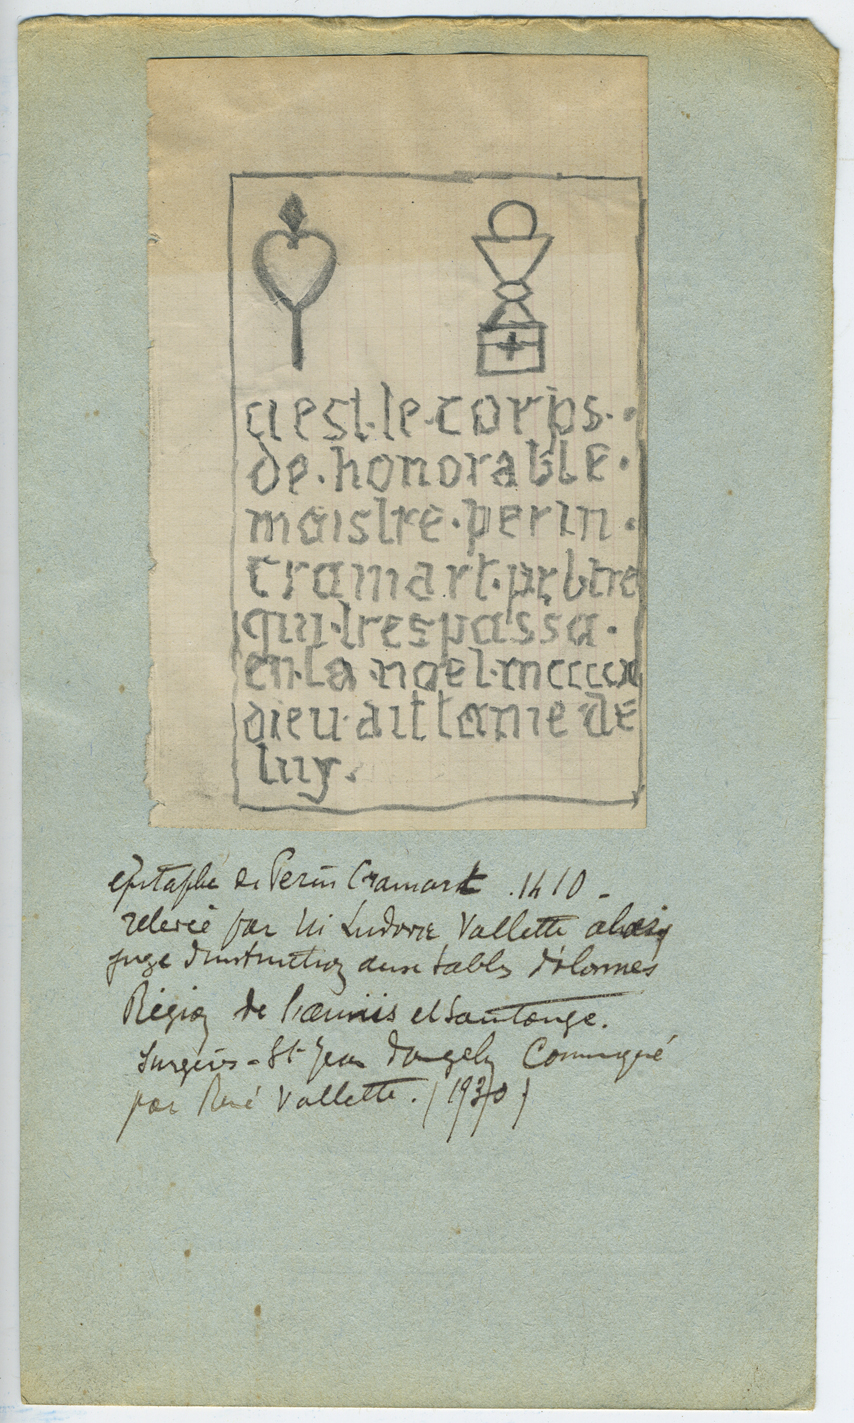 ci est·le·corps·
de·honorable·
maistre·perin·
cramart·prbtre
qui·trespassa·
en·la·noel·mccccx
dieu·ait lame de
luy.
épitaphe de Perin Cramart .1410_
relevé par M Ludovic Vallette
juge d'instruction aux Sables d'Olonnes
Région de l'Aunis et Saintonge.
Surgères - St Jean d'Angely Comuniqué
par René Vallette. (1930)